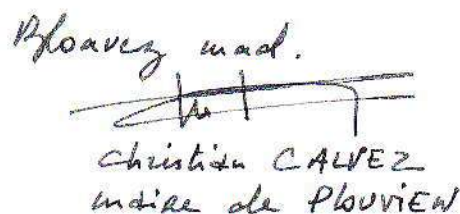 Bloavez mad.
Christian CALVEZ
maire de PLOUVIEN